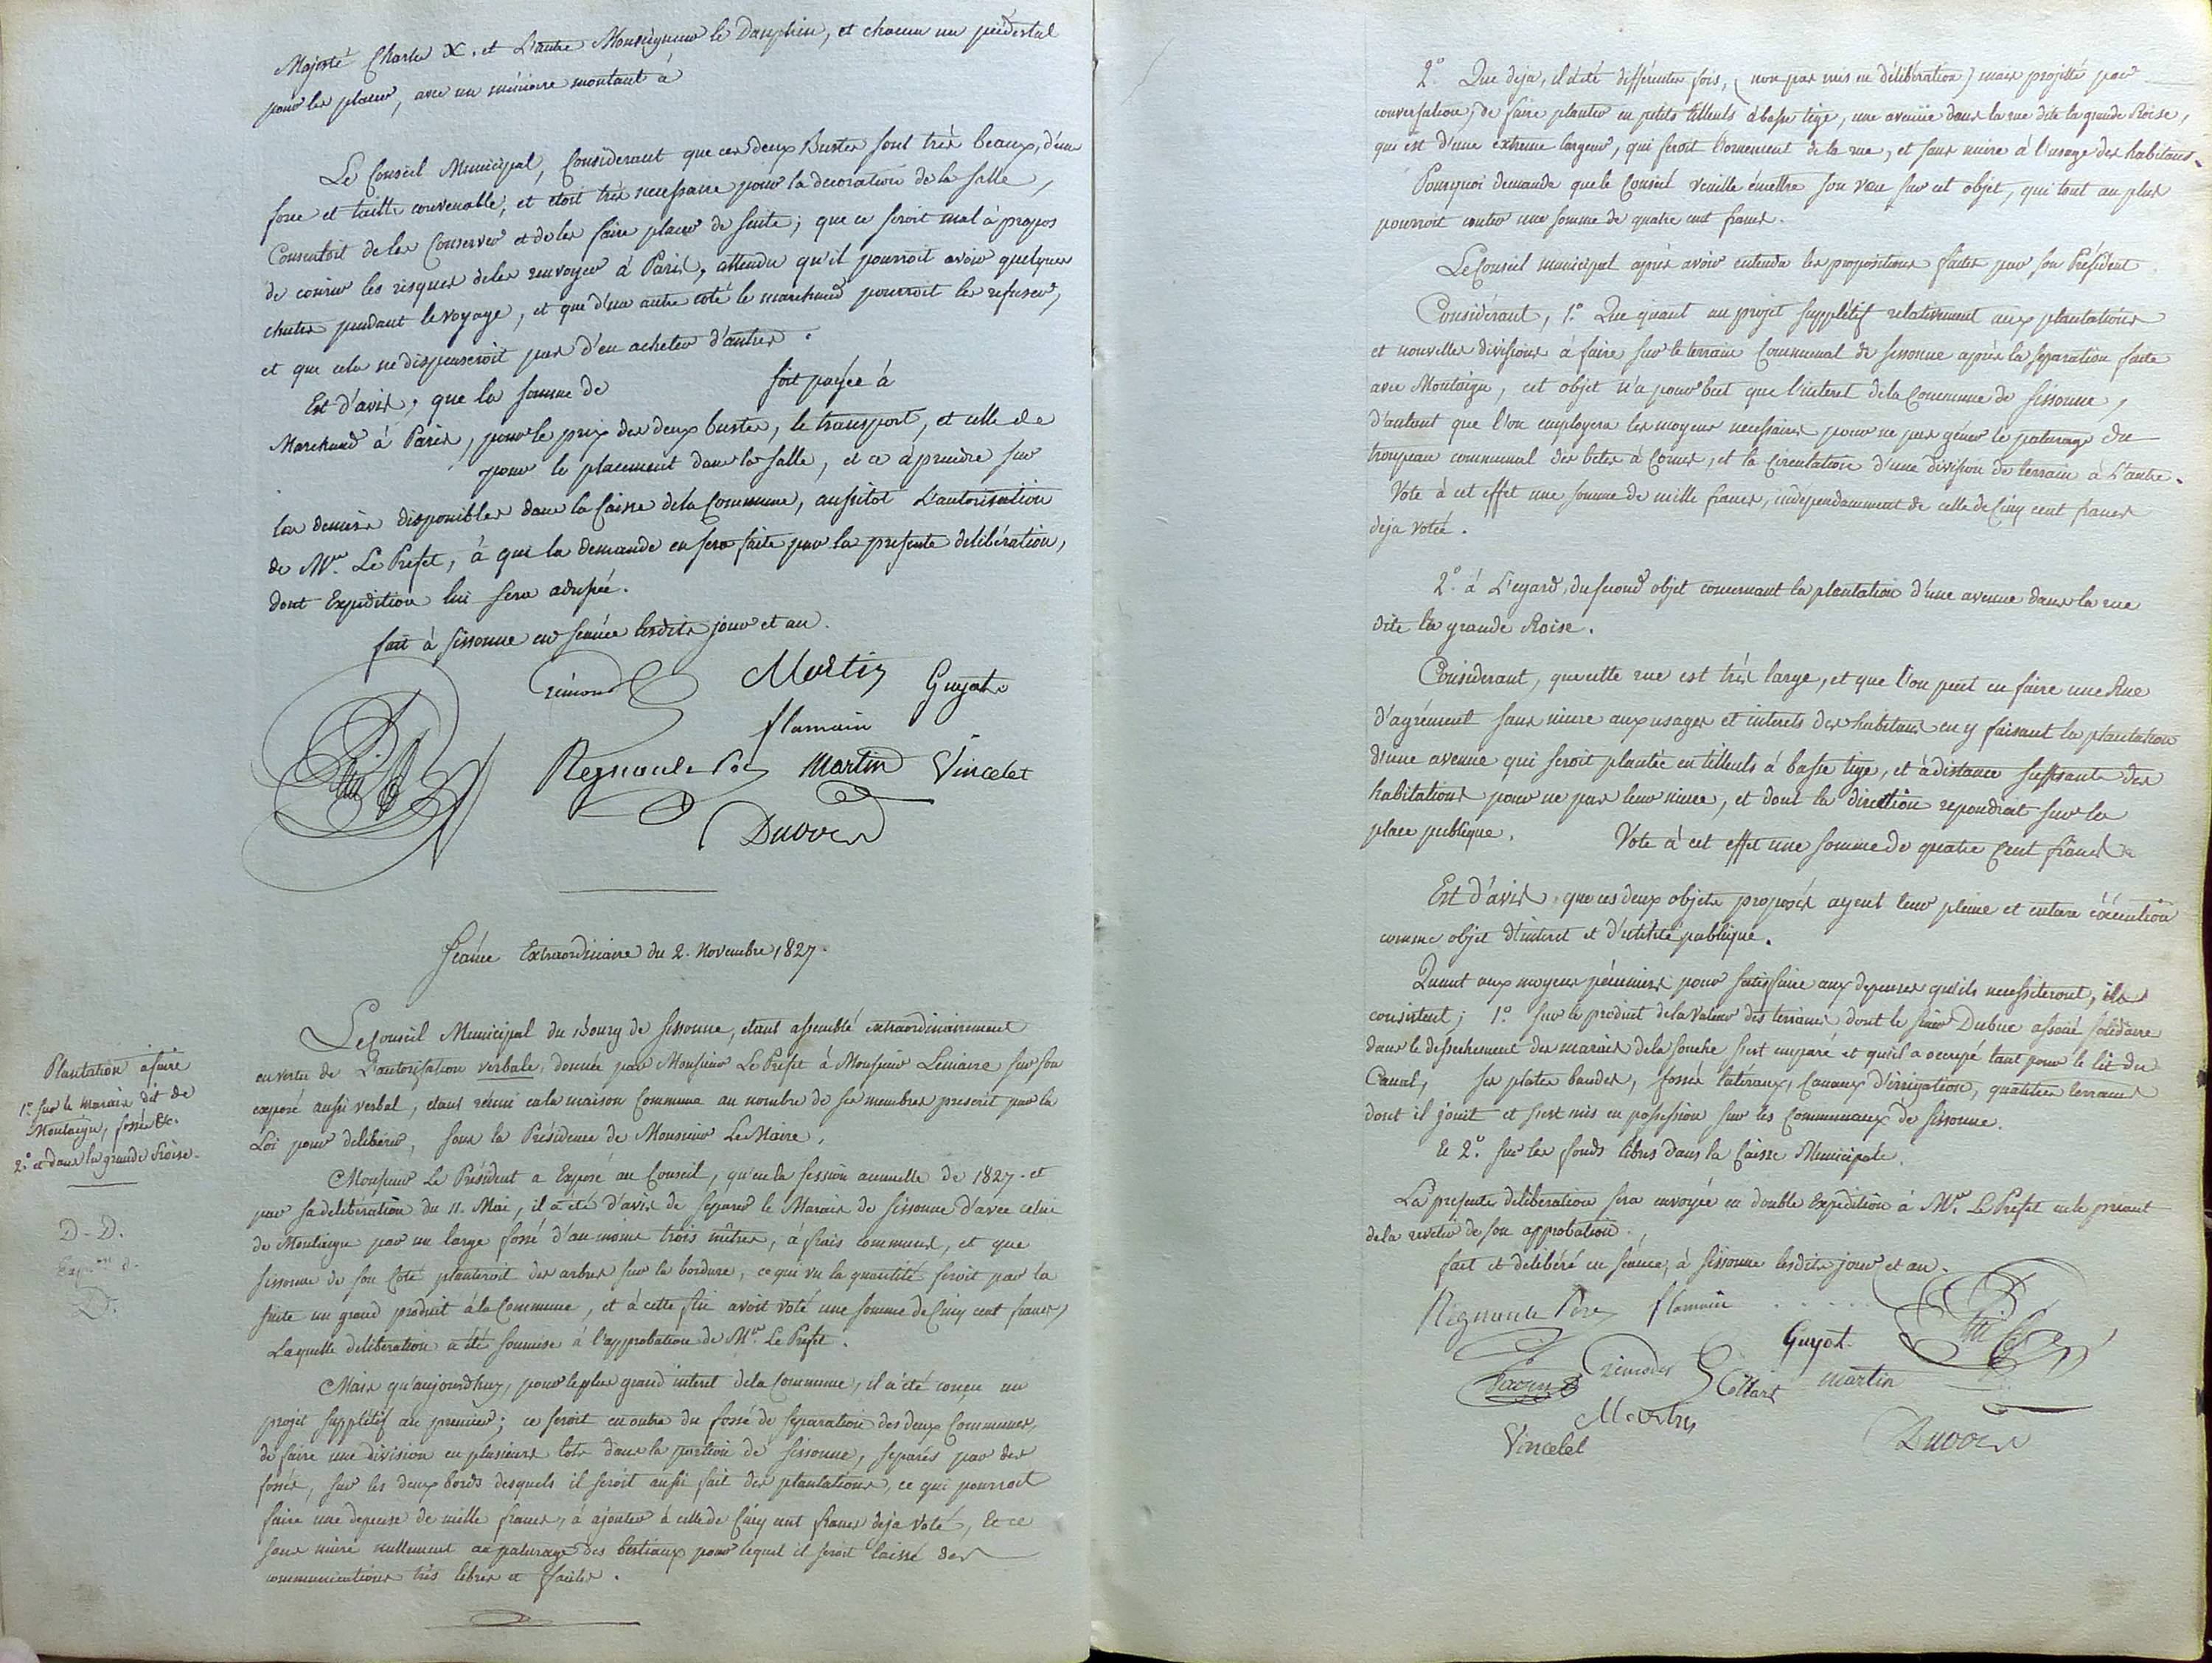 Majesté Charles X. et L'autre Monseigneur le Dauphin, et chacun un piédestal
pour les placer, avec un mémoire montant à
Le Conseil Municipal, Considerant que ces deux Bustes sont très beaux, d'une
forme et taille convenable, et etoit très necessaire pour la decoration de la salle,
Consentoit de les Conserver et de les faire placer de suite; que ce seroit mal à propos
de courir les risques de les renvoyer à Paris, attendu qu'il pourroit avoir quelques
chutes pendant le voyage, et que d'un autre coté le marchand pourroit les refuser,
et que cela ne dispenseroit pas d'en acheter d'autres.
Est d'avis, que la somme de soit payée à
Marchand à Paris, pour le prix des deux bustes, le transport, et celle de
pour le placement dans la salle, et ce à prendre sur
les deniers disponibles dans la Caisse de la Commune, aussitot L'autorisation
de Mr. Le Prefet, à qui la demande en sera faite par la presente deliberation,
dont Expedition lui sera adressée.
fait à Sissonne en Seance lesdits jour et an.
Martin Guyot
flamain
Regnault Père martin Vincelet
Duvoir
Séance Extraordinaire du 2. Novembre 1827.
Plantation à faire
1.° sur le Marais dit de
Montaigu, fossés &c.
2.° et dans la grande Roise.
D. D.
Le Conseil Municipal du Bourg de Sissonne, etant assemblé extraordinairement
en vertu de L'autorisation verbale, donnée par Monsieur Le Prefet à Monsieur Lemaire sur son
exposé aussi verbal, etant réuni en la maison Commune au nombre de ses membres prescrit par la
Loi pour deliberer, sous la Présidence de Monsieur Le Maire.
Monsieur Le Président a Exposé au Conseil, qu'en la session annuelle de 1827. et
par sa deliberation du 11. Mai, il a été d'avis de séparer le Marais de Sissonne d'avec celui
de Montaigu par un large fossé d'au moins trois mètres, à frais communs, et que
Sissonne de son Coté planteroit des arbres sur la bordure, ce qui vu la quantité seroit par la
suite un grand produit à la Commune, et à cette fin avoit voté une somme de Cinq cent francs,
Laquelle deliberation a été soumise à l'approbation de Mr. Le Prefet.
Mais qu'aujourd'huy, pour le plus grand interet de la Commune, il a été conçu un
projet supplétif au premier; ce seroit en outre du fossé de séparation des deux Communes,
de faire une division en plusieurs lots dans la portion de Sissonne, séparés par des
fossés, sur les deux bords desquels il seroit aussi fait des plantations, ce qui pourroit
faire une depense de mille francs, à ajouter à celle de Cinq cent francs deja voté, Et ce
sans nuire nullement au paturage des bestiaux pour lequel il seroit laissé des
communications très libres et faciles.
2.° Que deja, il a été différentes fois, (non pas mis en délibération) mais projetté par
conversation, de faire planter en petits tilleuls à basse tige, une avenüe dans la rue dite la grande Roise,
qui est d'une extreme largeur, qui seroit l'ornement de la rue, et sans nuire à l'usage des habitans.
Pourquoi demande que le Conseil veuille émettre son vœu sur cet objet, qui tout au plus
pourroit couter une somme de quatre cent francs.
Le Conseil municipal après avoir entendu les propositions faites par son Président
Considérant, 1.° Que quant au projet supplétif relativement aux plantations
et nouvelles divisions à faire sur le terrain Communal de Sissonne après la séparation faite
avec Montaigu, cet objet n'a pour but que l'interet de la Commune de Sissonne,
d'autant que l'on employera les moyens necessaires pour ne pas géner le paturage du
troupeau communal des betes à Cornes, et la Circulation d'une division de terrain à L'autre.
Vote à cet effet une somme de mille francs, indépendamment de celle de Cinq cent francs
deja votée.
2.° à L'egard, du second objet concernant la plantation d'une avenue dans la rue
dite la grande Roise.
Considerant, que cette rue est très large, et que l'on peut en faire une Rue
d'agrément sans nuire aux usages et interets des habitans en y faisant la plantation
d'une avenue qui seroit plantée en tilleuls à basse tige, et à distance suffisante des
habitations pour ne pas leur nuire, et dont la direction repondroit sur la
place publique. Vote à cet effet une somme de quatre Cent francs
Est d'avis, que ces deux objets proposés ayent leur pleine et entiere éxécution
comme objet d'interet et d'utilité publique.
Quant aux moyens pécuniers pour satisfaire aux depenses qu'ils necessiteront, ils
consistent; 1.° sur le produit de la valeur des terrains dont le Sieur Dubuc associé solidaire
dans le dessechement des marais de la souche s'est emparé et qu'il a occupé tant pour le lit du
Canal, ses plates bandes, fossés latéraux, Canaux d'irrigation, terrains
dont il jouit et s'est mis en possession sur les Communaux de Sissonne.
Et 2.° sur les fonds libres dans la Caisse Municipale.
La presente deliberation sera envoyée en double Expedition à Mr. Le Prefet en le priant
de la revetir de son approbation.
fait et deliberé en séance, à Sissonne lesdits jour et an.
Regnault Père flamain
Guyot
Collart martin
Martin
Vincelet Duvoir